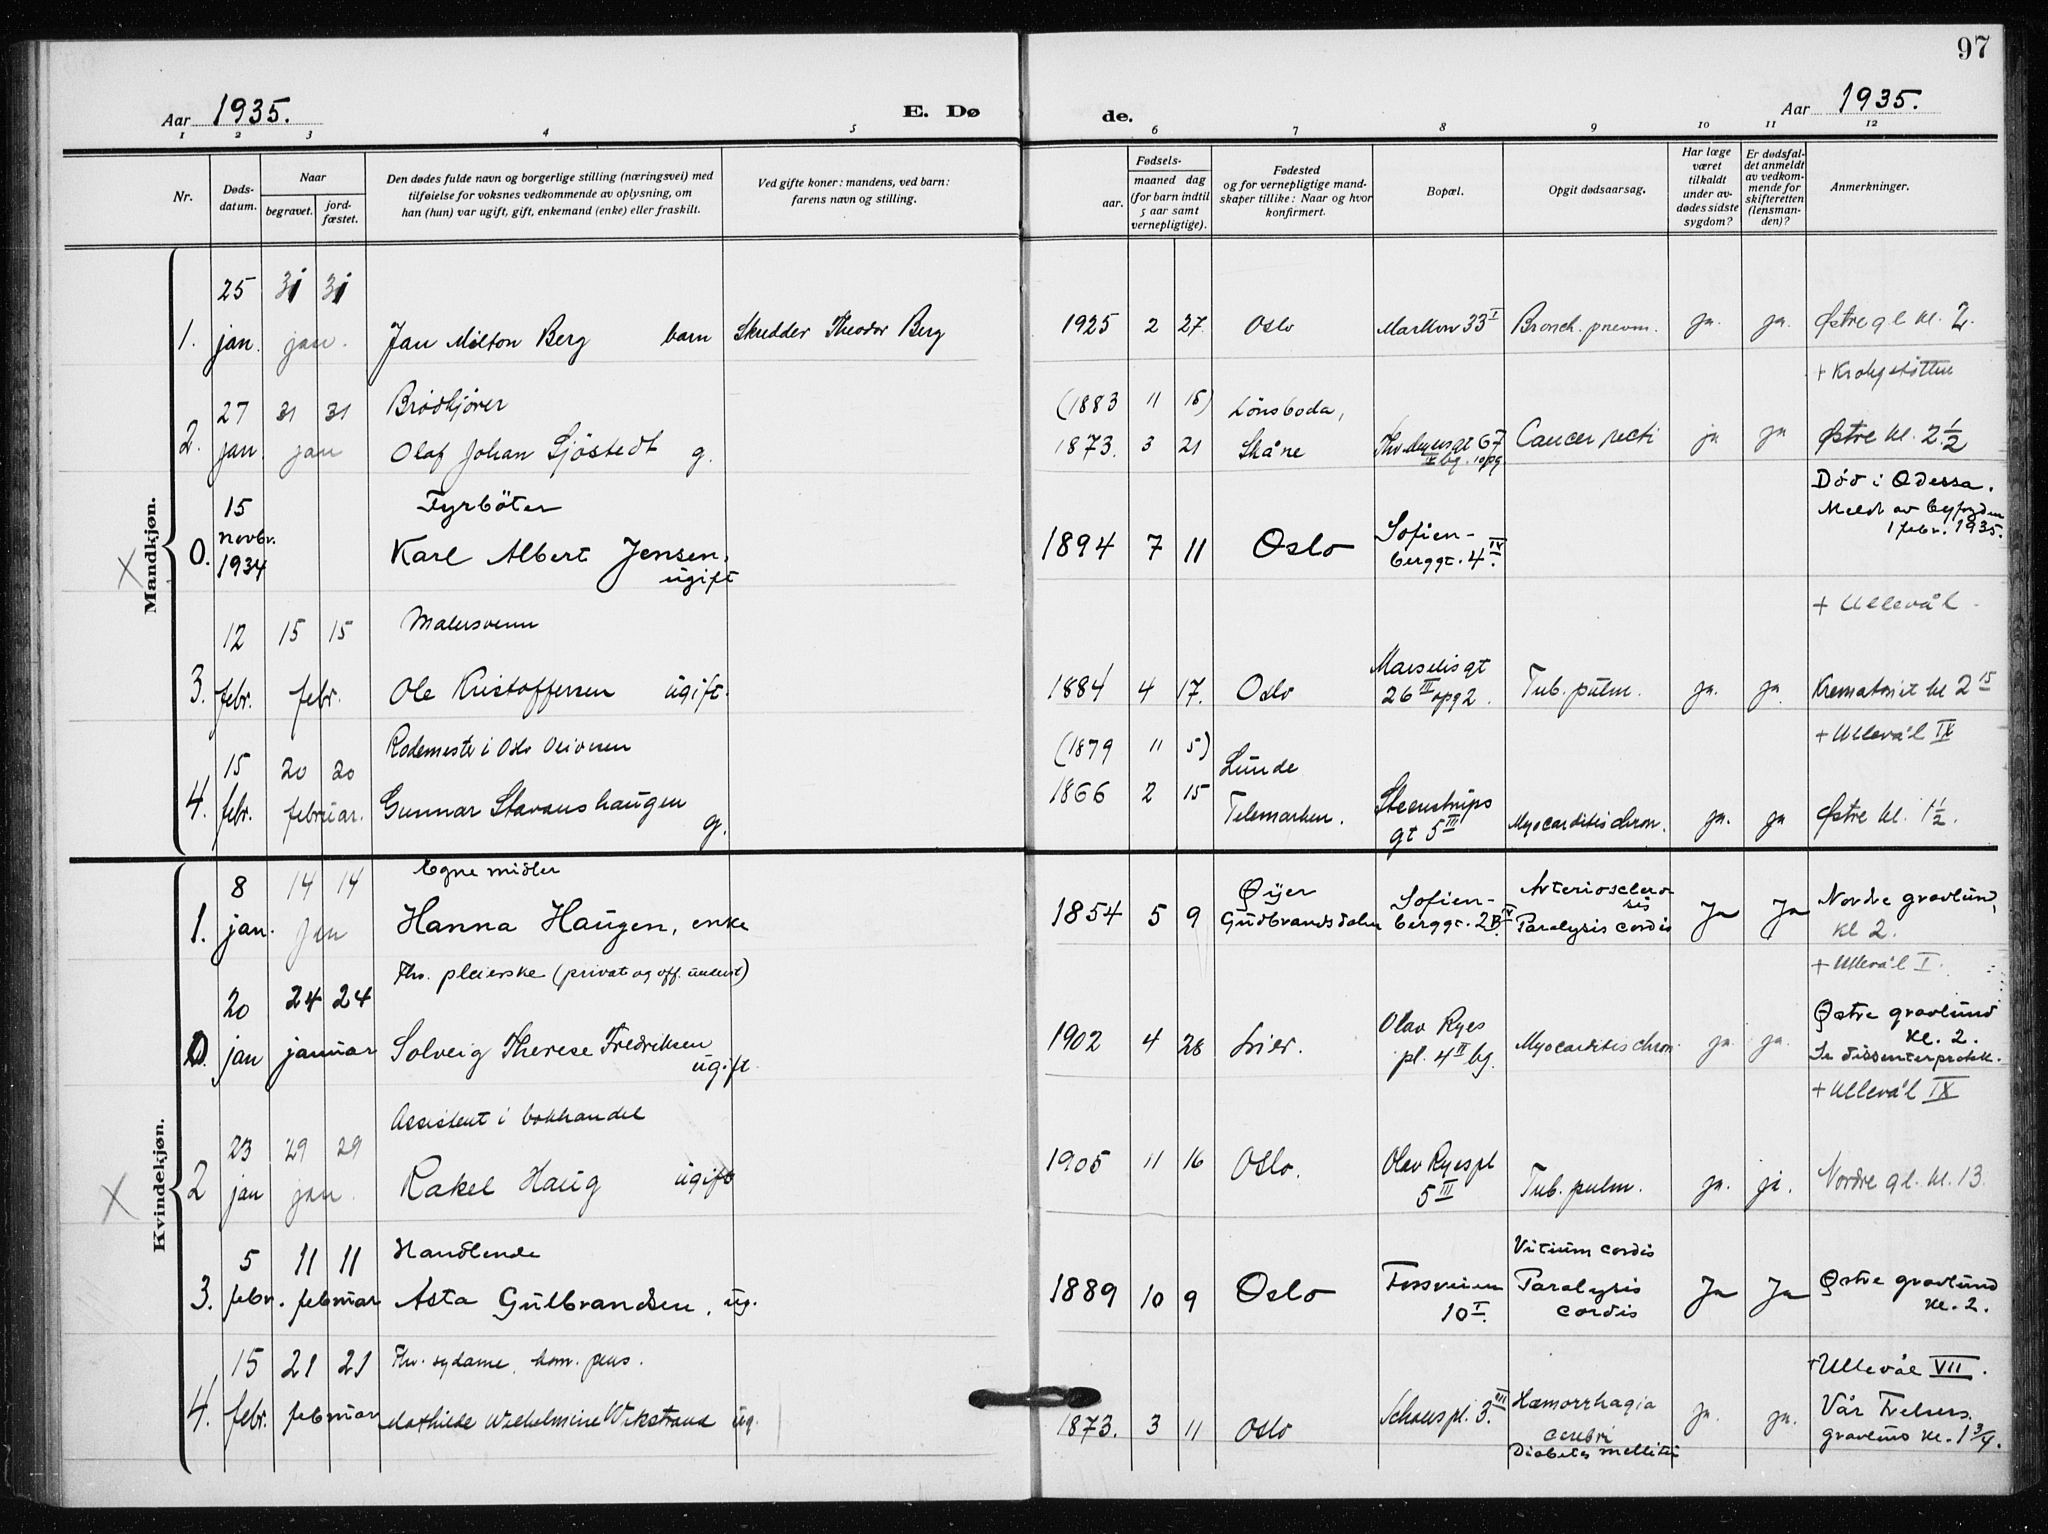 97
Aar 1935.
E. Dø
de.
Aar 1935.
1 2 3 4 5 6 7 8 9 10 11 12
Nr.
Døds-
datum.
Naar
begravet.
jord-
fæstet.
Den dødes fulde navn og borgerlige stilling (næringsvei) med
tilføielse for voksnes vedkommende av oplysning, om
han (hun) var ugift, gift, enkemand (enke) eller fraskilt.
Ved gifte koner: mandens, ved barn:
farens navn og stilling.
Fødsels-
aar.
maaned
dag
(for barn indtil
5 aar samt
vernepligtige).
Fødested
og for vernepligtige mand-
skaper tillike: Naar og hvor
konfirmert.
Bopæl.
Opgit dødsaarsag.
Har læge
været
tilkaldt
under av-
dødes sidste
sygdom?
Er dødsfal-
det anmeldt
av vedkom-
mende for
skifteretten
(lensman-
den)?
Anmerkninger.
Mandkjøn.
25 31 31
1. jan. jan. Jan Milton Berg barn Skredder Theodor Berg 1925 2 27. Oslo 33 I Bronch. pneum. ja. ja. Østre gl kl. 2.
+ Krohgstøtten
27 31 31 Brødkjører (1883 11 18) Lönsboda,
2. jan. jan Olaf Johan Sjöstedt g. 1873. 3 21 Skåne 67 Cancer recti ja ja Østre kl. 2 1/2
IV bg. opg
15 Fyrbøter Død i Odessa.
Meldt av byfogden
1 febr. 1935.
X 0. novbr. 1934 Karl Albert Jensen, ugift 1894 7 11 Oslo Sofien-
berggt. 4 IV.
+ Ullevål
12 15 15 Malersvenn
3. febr. febr. Ole Kristoffersen ugift. 1884 4 17. Oslo Marselisgt
26 III opg 2. Tub. pulm. ja. ja Krematoriet kl 2 15
+ Ullevål IX
15 20 20 Rodemester i Oslo (1879 11 5) Lunde
4. febr. februar. Gunnar Stavanshaugen g. 1866 2 15 Telemarken. Steenstrups
gt 5 III Myocarditis chron. ja. ja Østre kl. 1 1/2.
Kvindekjøn.
8 14 14 Egne midler
1. jan. jan Hanna Haugen, enke 1854 5 9 Øyer
Gudbrandsdalen Sofien-
berggt. 2B IV. Arteriosclero-
sis
Paralysis cordis Ja Ja Nordre gravlund,
kl 2.
+ Ullevål I.
20 24 24 Fhv. pleierske (privat og off. underst)
0. jan januar Solveig Therese Fredriksen
ugift. 1902 4 28 Lier. Olav Ryes
pl. 4 II bg. Myocarditis chron. ja. ja. Østre gravlund
kl. 2.
Se dissenterprotok.
+ Ullevål IX
23 29 29 Assistent i bokhandel
X 2 jan jan. Rakel Haug ugift 1905 11 16 Oslo. Olav Ryes pl
5 III Tub. pulm. ja. ja. Nordre gl. kl. 13
5 11 11 Handlende
3. febr. februar Asta Gulbrandsen, ug. 1889 10 9 Oslo Fossveien
10 I. Vitium cordis
Paralysis
cordis Ja Ja Østre gravlund
kl. 2.
+ Ullevål VII.
15 21 21 Fhv. sydame, kom. pens.
4. febr. februar Mathilde Wilhelmine Wikstrand ug. 1873. 3 11 Oslo Schouspl. 3. VII Hæmorrhagia
cerebri
Diabetes mellitus ja. ja. Vår Frelsers
gravlund kl. 1 3/4.